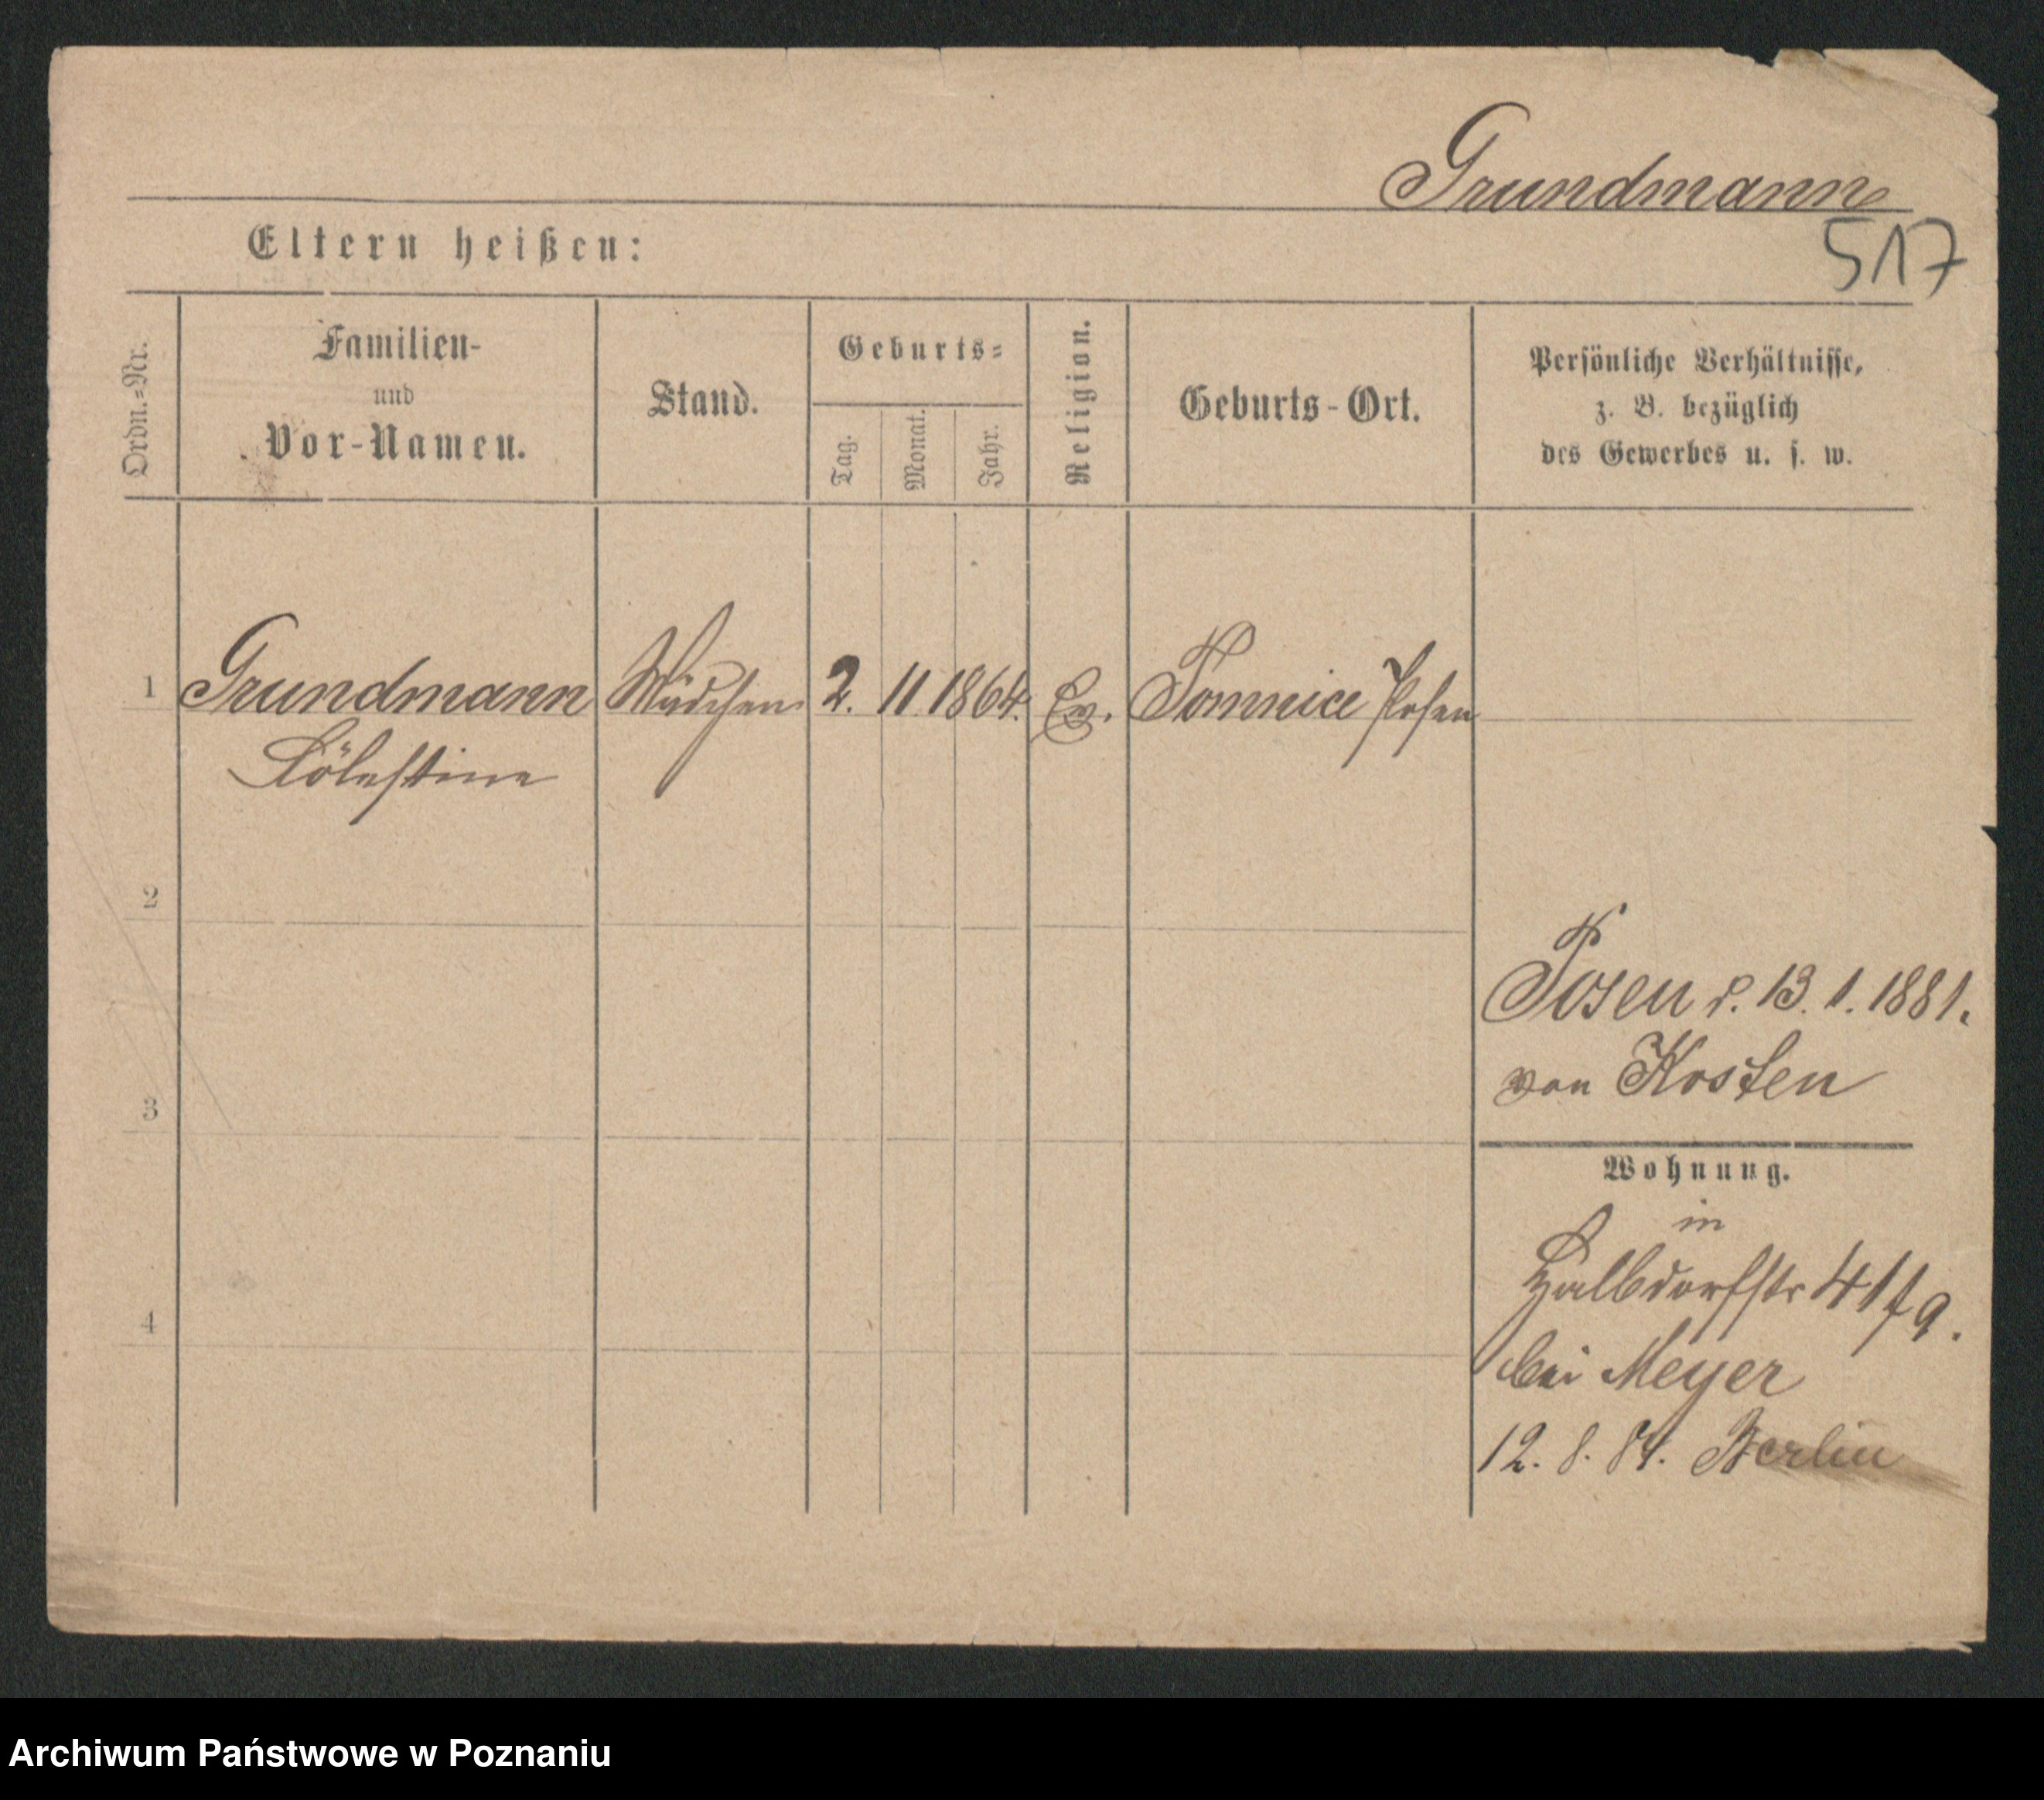 Grundmann
517
Eltern heißen:
Ordn.=Nr.
Familien-
und
Vor-Namen.
Stand.
Geburts=
Tag.
Monat.
Jahr.
Religion.
Geburts-Ort.
Persönliche Verhältnisse,
z. B. bezüglich
des Gewerbes u. s. w.
1 Grundmann Mädchen 2. 11 1864. Ev. Tomnice Posen
Cölestine
2
Posen d. 13. 1. 1881.
von Kosten
3
Wohnung.
in
Halbdorfstr 41
4
bei Meyer
12. 8. 84. Berlin
Archiwum Państwowe w Poznaniu